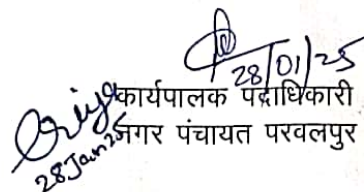 28/01/25
कार्यपालक पदाधिकारी
नगर पंचायत परवलपुर
28 Jan 25